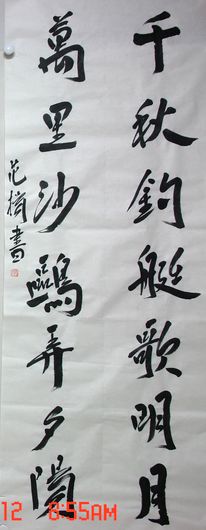 千秋釣艇歌明月
萬里沙鷗弄夕陽
范 書
12 8:55AM